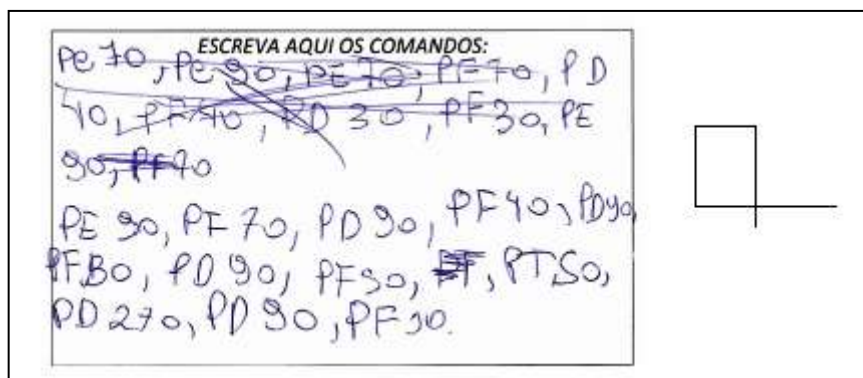 ESCREVA AQUI OS COMANDOS:
PE 70, PE 90, PE 70, PF 70, PD
40, PF 40, PD 30, PF 30, PE
90, PF 70
PE 90, PF 70, PD 90, PF 40, PD 90,
PF 80, PD 90, PF 90, PT 50,
PD 270, PD 90, PF 30.